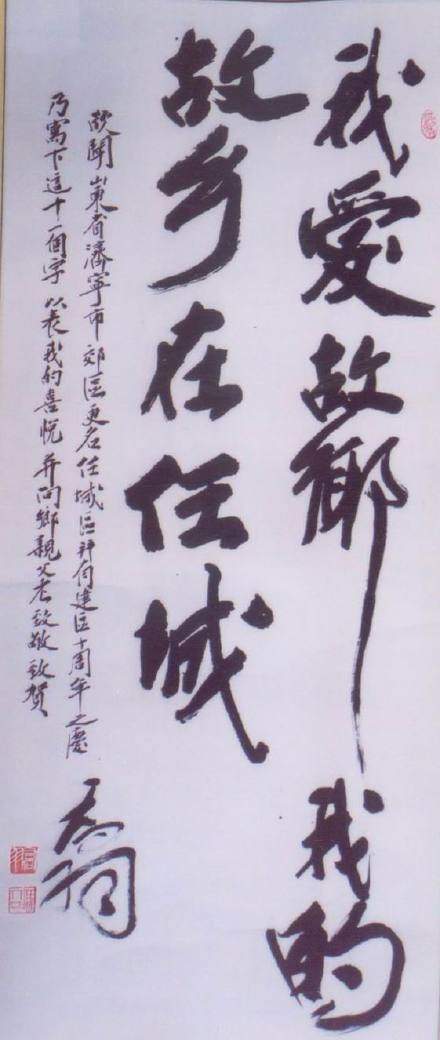 我愛故鄉 我的
故乡在任城
欣聞山東省濟寧市郊區更名任城區并有建區十周年之慶
乃寫下這十一個字以表我的喜悅 并向鄉親父老致敬致賀
喬羽